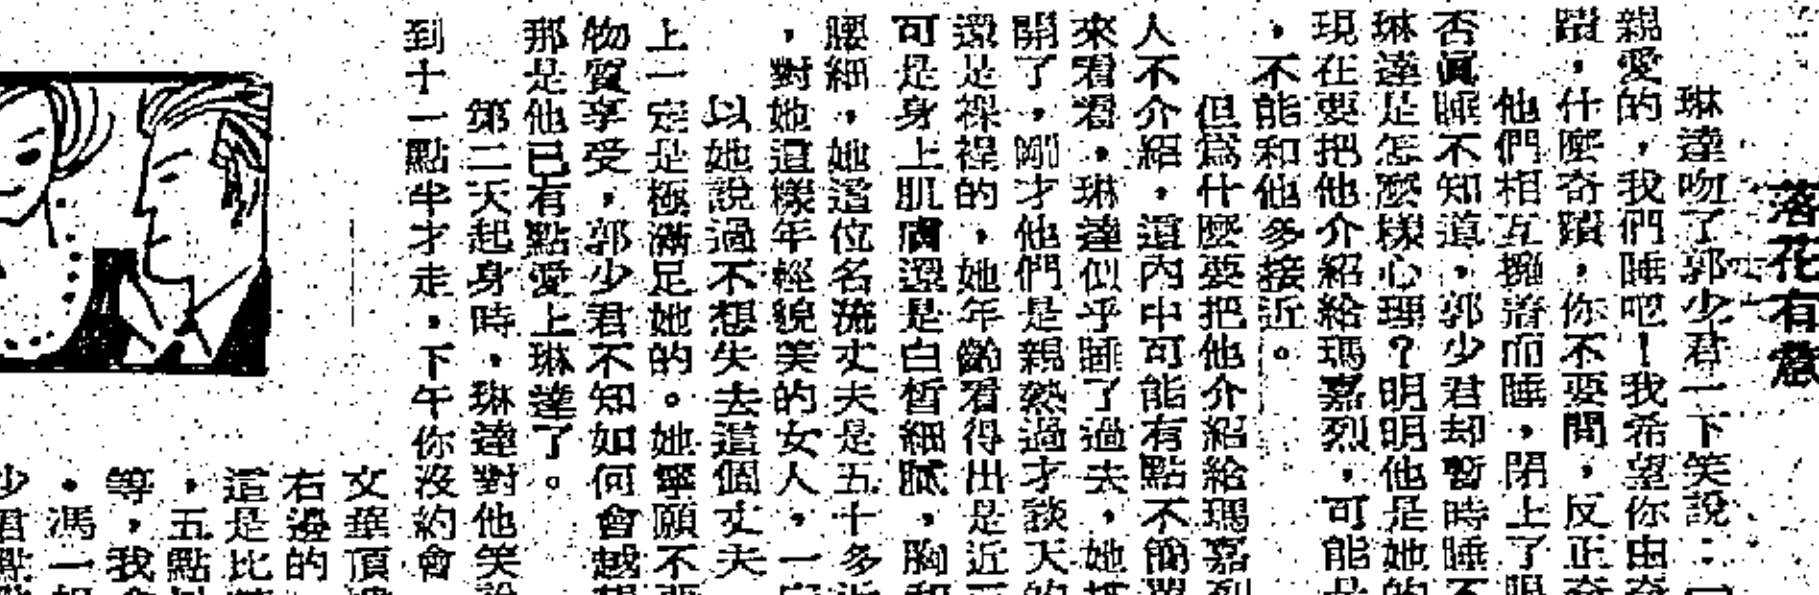 落花有意
琳達吻了郭少君一下笑說：「
親愛的，我們睡吧！我希望你由奇
蹟，什麼奇蹟，你不要問，反正奇
他們相互擁着而睡，閉上了眼
否眞睡不知道，郭少君却暫時睡不
琳達是怎麼樣心理？明明他是她的
現在要把他介紹給瑪嘉烈，可能是
，不能和他多接近。
但爲什麼要把他介紹給瑪嘉烈
人不介紹，這內中可能有點不簡單
來看看，琳達似乎睡了過去，她
開了，剛才他們是親熱過才談天的
還是裸裎的，她年齡看得出是近
可是身上肌膚還是白皙細膩，胸和
腰細，她這位名流丈夫是五十多近
，對她這樣年輕貌美的女人，一定
以她說過不想失去這個丈夫
上一定是極滿足她的。她寧願不要
物質享受，郭少君不知如何會越想
那是他已有點愛上琳達了。
第二天起身時，琳達對他笑說
到十一點半才走，下午你沒約會
文華頂樓
右邊的
這是比
，五點
等，我會
，馮一
少君點